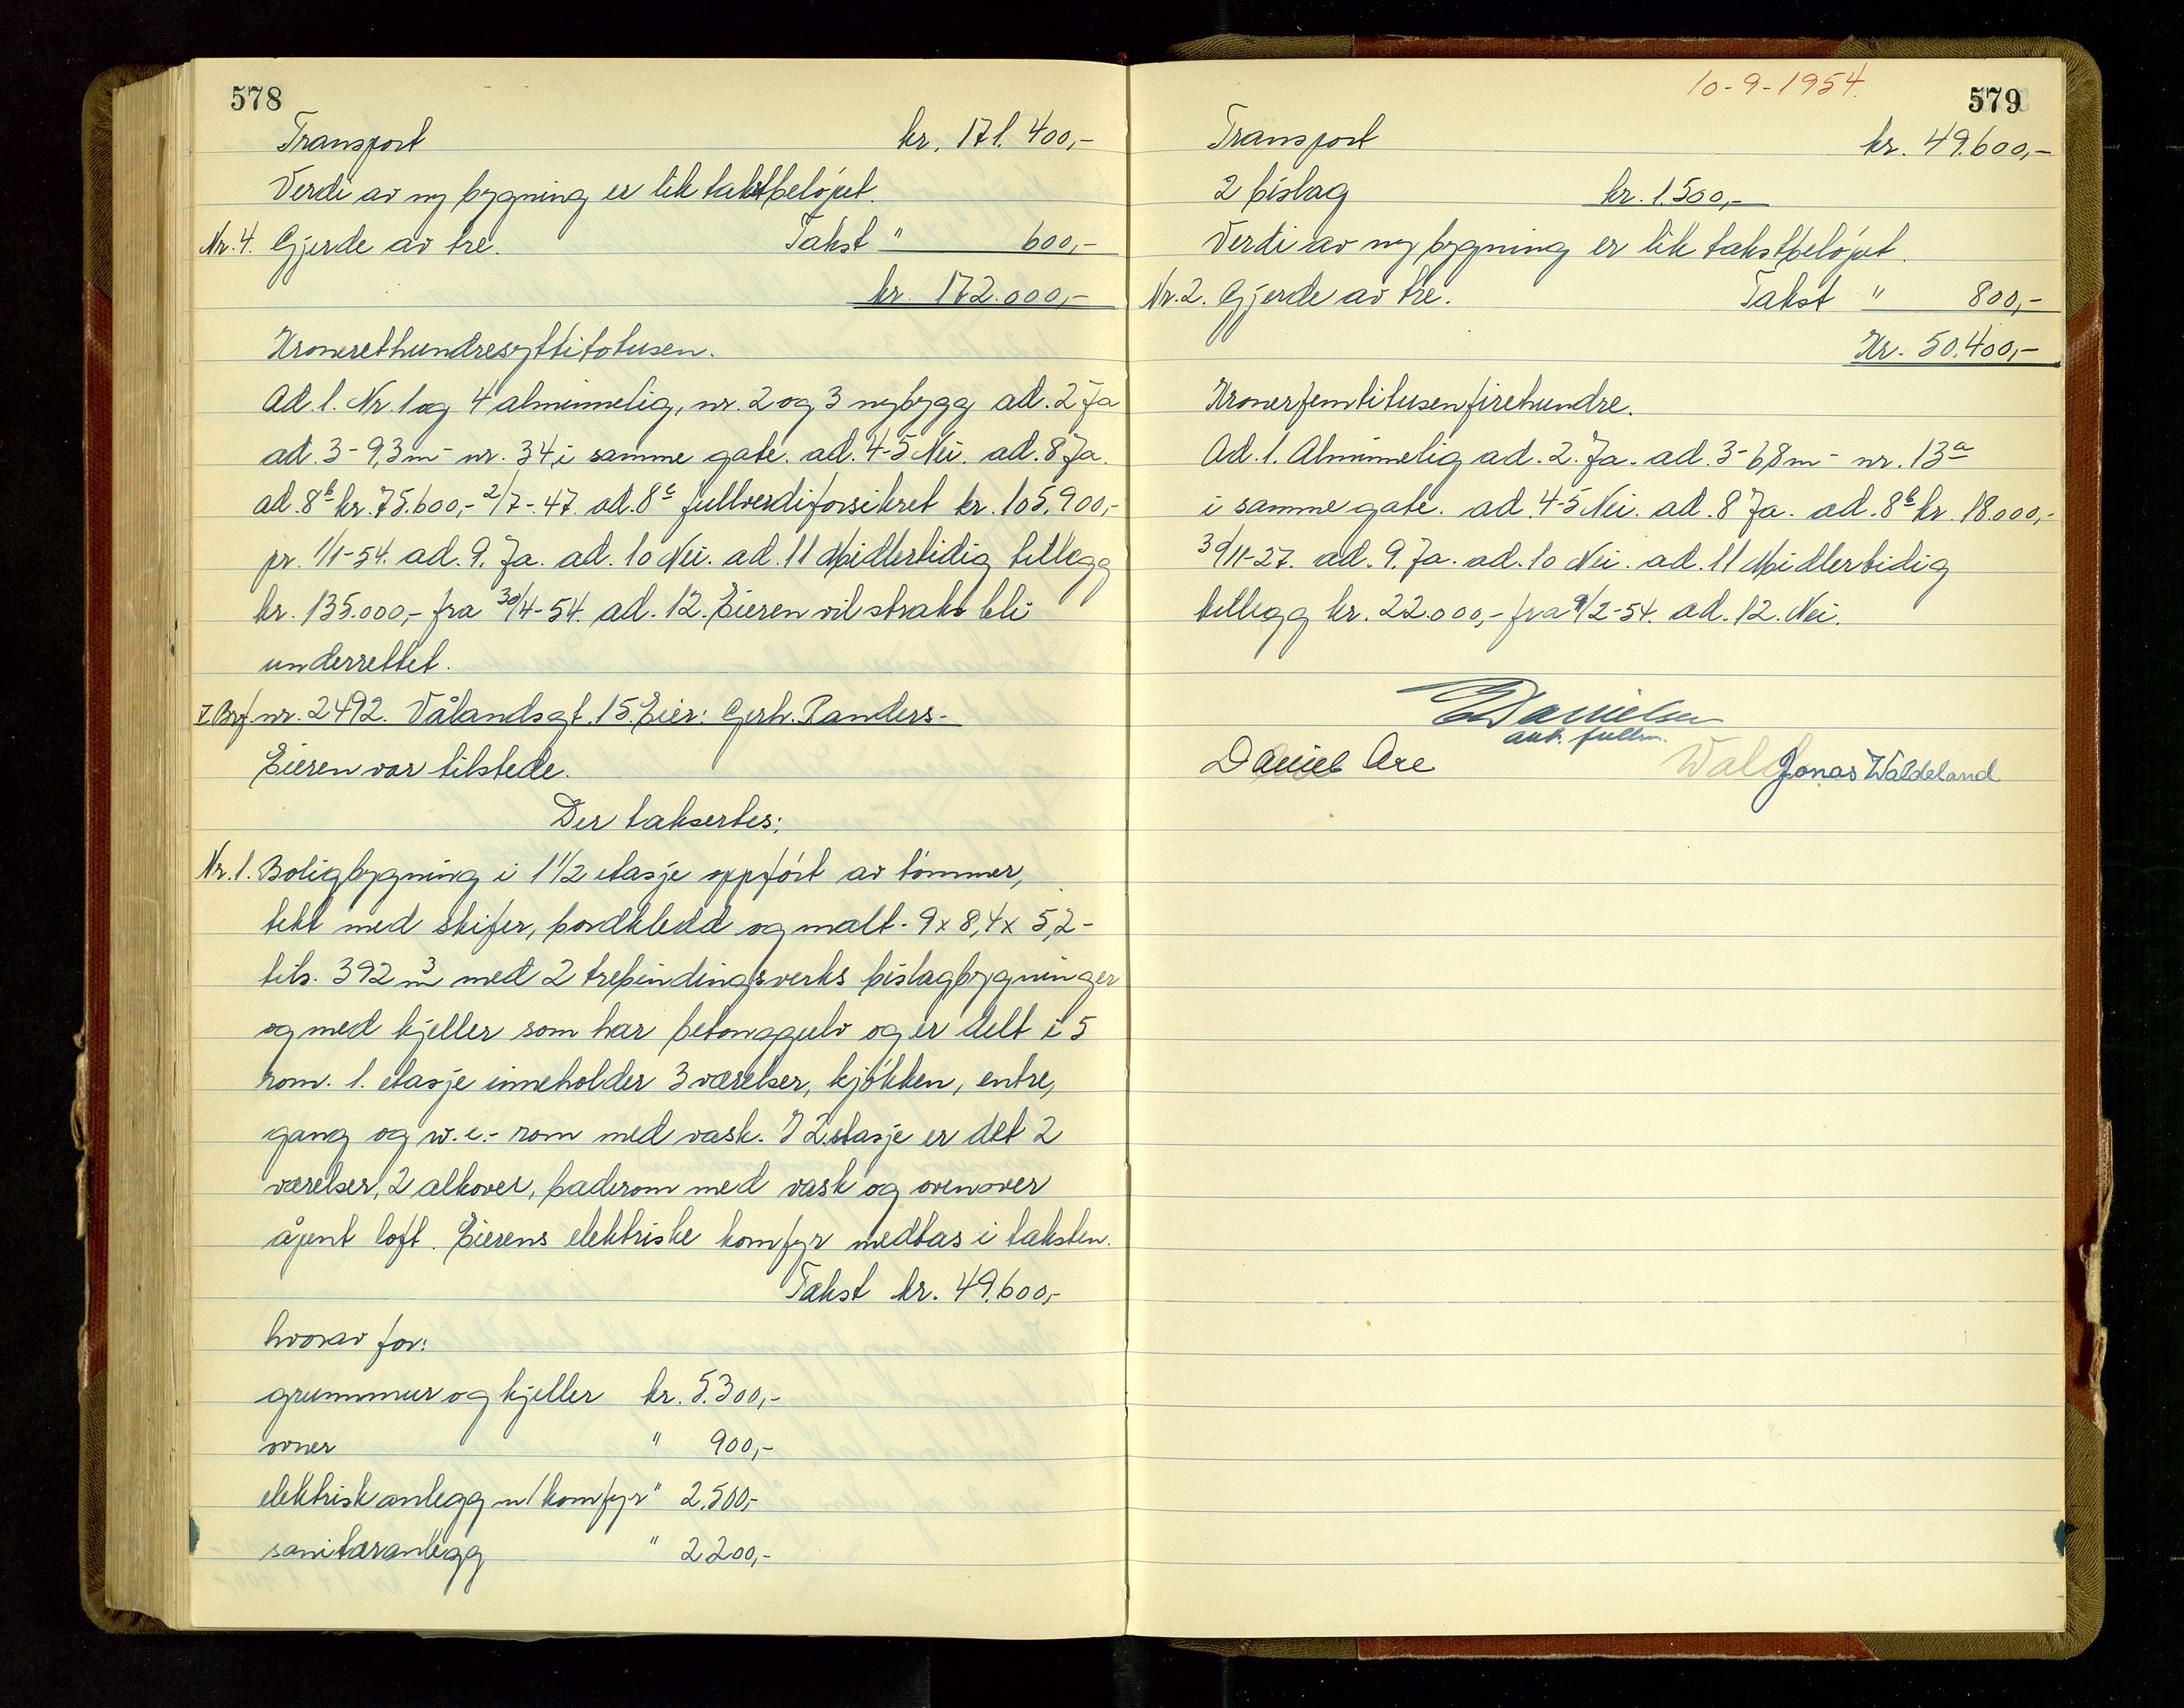 578
Transport kr. 171.400,-
Verdi av ny bygning er lik takstbeløpet.
Nr. 4. Gjerde av tre. Takst " 600,-
kr. 172.000,-
Kroneretthundresyttitotusen.
Ad. 1. Nr. 1 og 4 alminnelig, nr. 2 og 3 nybygg ad. 2 Ja
ad. 3 - 9,3 m - nr. 34 i samme gate. ad. 4-5 Nei. ad. 8 Ja.
ad. 8b kr. 75.600,- 2/7-47. ad. 8c fullverdiforsikret kr. 105.900,-
pr. 1/1-54. ad. 9. Ja. ad. 10 Nei. ad. 11 Midlertidig tillegg
kr. 135.000,- fra 30/4-54. ad. 12. Eieren vil straks bli
underrettet.
nr. 2492. Vålandsgt. 15. Eier: Gerh. Randers.-
Eieren var tilstede.
Der taksertes:
Nr. 1. Boligbygning i 1 1/2 etasje oppført av tømmer,
tekt med skifer, bordkledd og malt - 9 x 8,4 x 5,2 -
tils. 392 m3 med 2 trebindingsverks bislagbygninger
og med kjeller som har betonggulv og er delt i 5
rom. 1. etasje inneholder 3 værelser, kjøkken, entre,
gang og w.c.- rom med vask. I 2. etasje er det 2
værelser, 2 alkover, baderom med vask og ovenover
åpent loft. Eierens elektriske komfyr medtas i taksten.
Takst kr. 49.600,-
hvorav for:
grunnmur og kjeller kr. 5.300,-
ovner " 900,-
elektrisk anlegg m/komfyr " 2.500,-
sanitæranlegg " 2.200,-
10-9-1954.
579
Transport kr. 49.600,-
2 bislag kr. 1.500,-
Verdi av ny bygning er lik takstbeløpet.
Nr. 2. Gjerde av tre. Takst " 800,-
Kr. 50.400,-
Kronerfemtitusenfirehundre.
Ad. 1. Alminnelig ad. 2. Ja. ad. 3 - 6,8 m - nr. 13a
i samme gate. ad. 4-5 Nei. ad. 8 Ja. ad. 8b kr. 18.000,-
30/11-27. ad. 9. Ja. ad. 10 Nei. ad. 11 Midlertidig
tillegg kr. 22.000,- fra 9/2-54. ad. 12. Nei.
EDanielsen
aut. fullm.
Daniel Are Jonas Waldeland